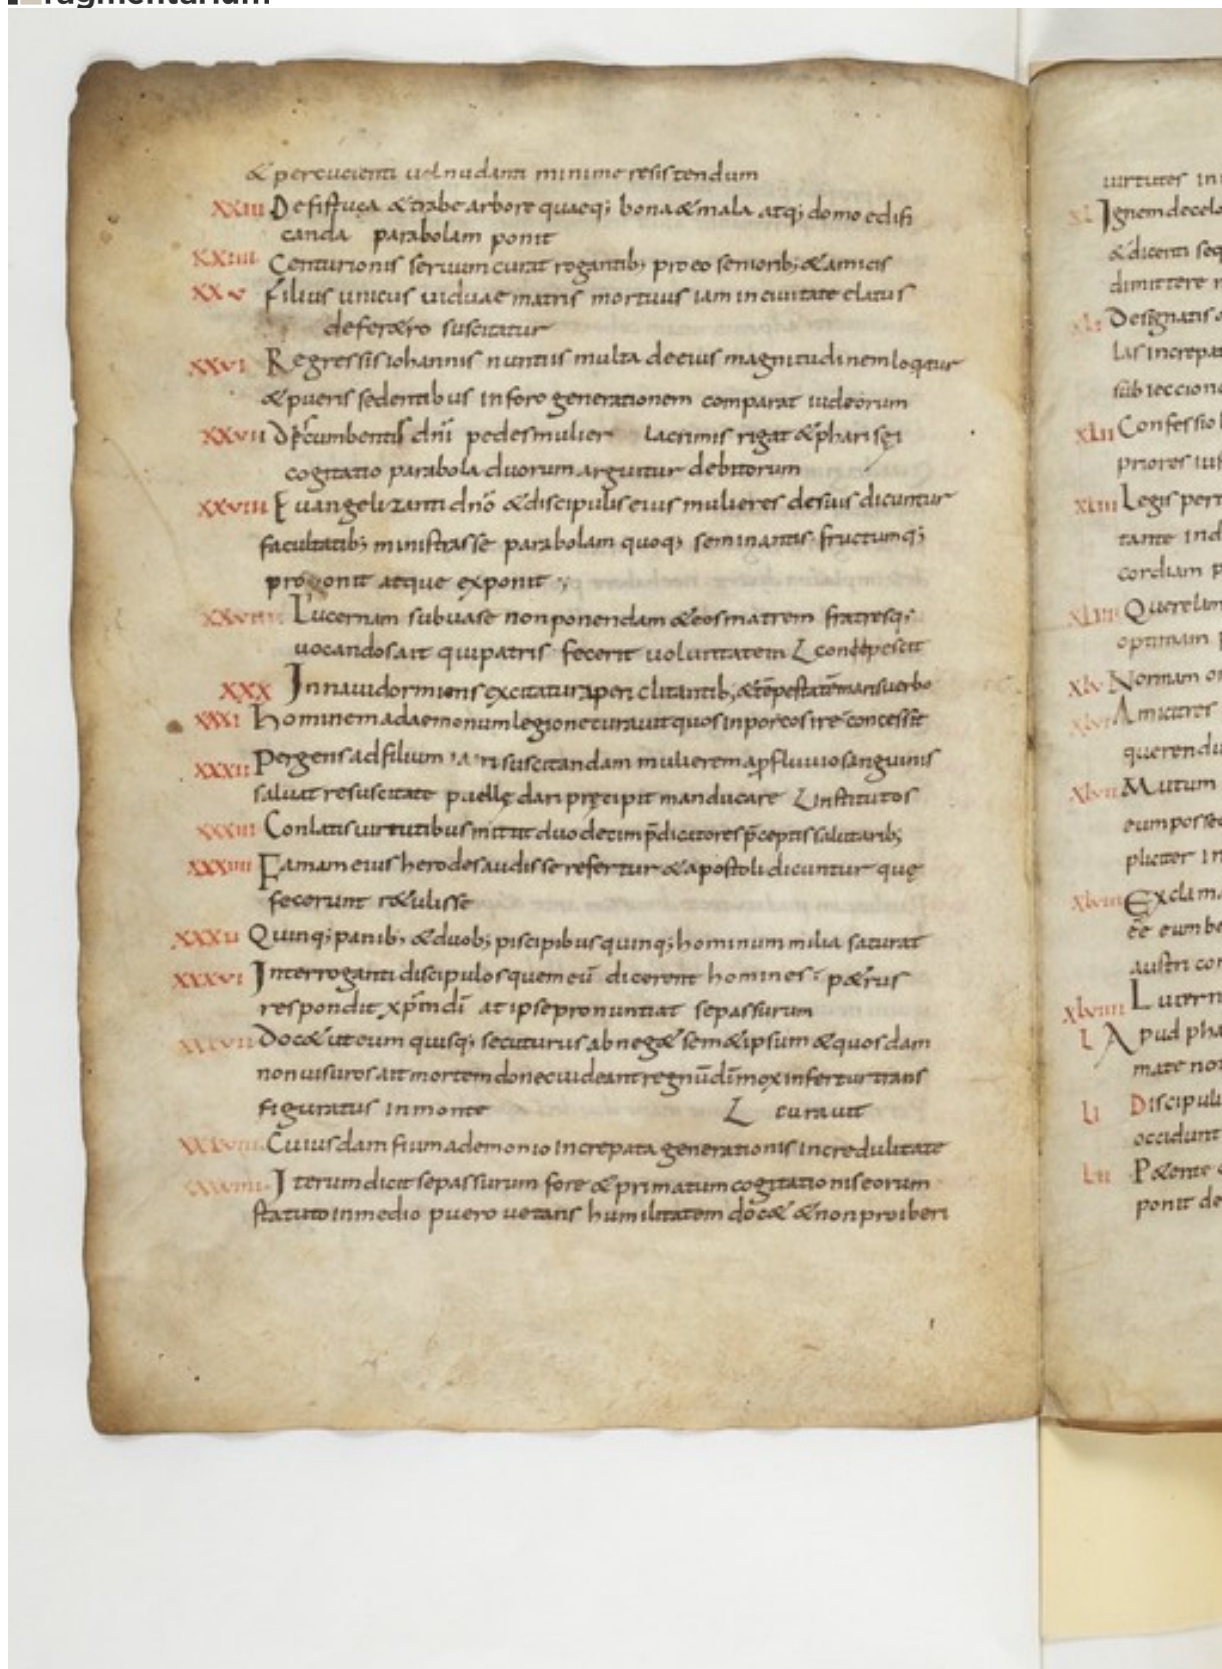 ragmentarium
& percucienti uel nudanti minime resistendum
XXIII De fistuca & trabe arbore quaeq; bona & mala atq; domo edifi
canda parabolam ponit
XXIIII Centurionis seruum curat rogantib; pro eo seniorib; & amicis
XXV Filius unicus uiduae matris mortuus iam in ciuitate elatus
de fer&ro suscitatur
XXVI Regressis iohannis nuntiis multa de eius magnitudinem loqitur
& pueris sedentibus in foro generationem comparat iudeorum
XXVII Decumbentis dn̄i pedes mulier lacrimis rigat & pharisęi
cogitatio parabola duorum arguitur debitorum
XXVIII Euangelizanti dn̄o & discipulis eius mulieres de suis dicuntur
facultatib; ministrasse parabolam quoq; seminantis fructumq;
proponit atque exponit ;
XXVIIII Lucernam sub uase non ponendam & eos matrem fratresq;
uocandos ait qui patris fecerit uoluntatem
XXX In naui dormiens excitatur a periclitantib; & tēpestatē maris uerbo
XXXI hominem a daemonum legione curauit quos in porcos ire concessit
XXXII Pergens ad filium suscitandam mulierem a p̱fluuio sanguinis
saluat resuscitate puellę dari pręcipit manducare institutos
XXXIII Conlatis uirtutibus mittit duodecim p̄dicatores p̄ceptis salutarib;
XXXIIII Famam eius herodes audisse refertur & apostoli dicuntur quę
fecerunt r&ulisse
XXXV Quinq; panib; & duob; piscipibus quinq; hominum milia saturat
XXXVI Interroganti discipulos quem eū dicerent homines p&rus
respondit xp̄m dī at ipse pronuntiat se passurum
XXXVII Doc& ut eum quisq; secuturus abneg& sem&ipsum & quosdam
non uisuros ait mortem donec uideant regnū dī mox infertur trans
figuratus in monte curauit
XXXVIII Cuiusdam fium a demonio increpata generationis incredulitate
XXXVIIII Iterum dicit se passurum fore & primatum cogitationis eorum
statuto in medio puero uetans humilitatem doc& & non proiberi
uirtutes in
XL Ignem de celo
& dicenti seq
dimittere
XLI Designatis
las increpat
subieccion
XLII Confessio
priores
XLIII Legis per
tante ind
cordiam p
XLIIII Querelam
optimam
XLV Normam or
XLVI Amicitres
querendu
XLVII Mutum
eum posse
pliciter in
XLVIII Exclama
ēē eum be
austri con
XLVIIII Lucern
L Apud pha
mate non
LI Discipuli
occidunt
LII P&ente
ponit de